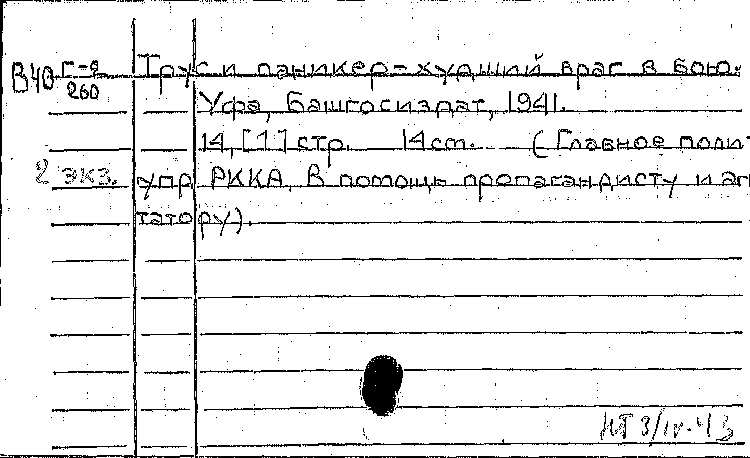 В40 Г-9/260 Трус и паникер - худший враг в бою.
Уфа, Башгосиздат, 1941.
14, [1] стр. 14 см. (Главное поли-
2 экз. упр. РККА. В помощь пропагандисту и аги
татору).